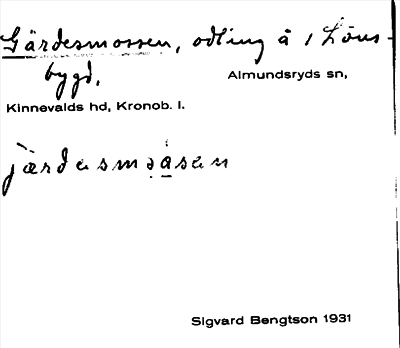 Gärdesmossen, odling å 1 Löns-
bygd,
Almundsryds sn,
Kinnevalds hd, Kronob. l.
Sigvard Bengtson 1931